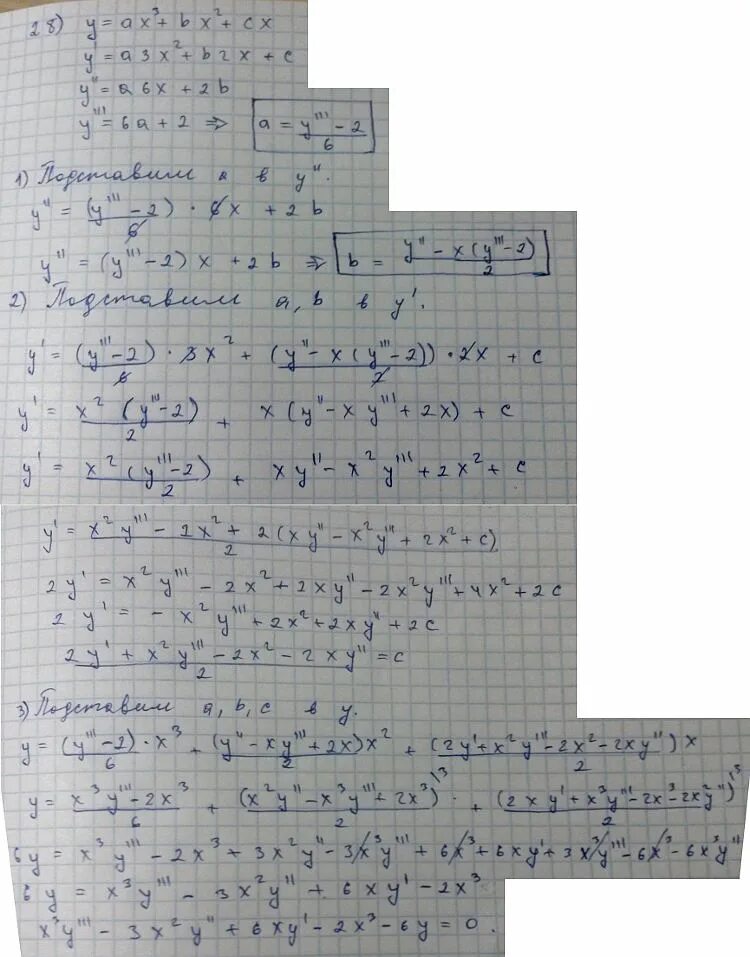 28) y = ax³ + bx² + cx
y = a3x² + b2x + c
y'' = a6x + 2b
y''' = 6a + 2 ⇒ a = (y''' - 2)/6
1) Подставим a в y''.
y'' = (y''' - 2)/6 · 6x + 2b
y'' = (y''' - 2)x + 2b ⇒ b = (y'' - x(y''' - 2))/2
2) Подставим a, b в y'.
y' = (y''' - 2)/6 · 3x² + (y'' - x(y''' - 2))/2 · 2x + c
y' = x²(y''' - 2)/2 + x(y'' - xy''' + 2x) + c
y' = x²(y''' - 2)/2 + xy'' - x²y''' + 2x² + c
y' = (x²y''' - 2x² + 2(xy'' - x²y''' + 2x² + c))/2
2y' = x²y''' - 2x² + 2xy'' - 2x²y''' + 4x² + 2c
2y' = - x²y''' + 2x² + 2xy'' + 2c
(2y' + x²y''' - 2x² - 2xy'')/2 = c
3) Подставим a, b, c в y.
y = (y''' - 2)/6 · x³ + (y'' - xy''' + 2x)x²/2 + (2y' + x²y''' - 2x² - 2xy'')x/2
y = (x³y''' - 2x³)/6 + (x²y'' - x³y''' + 2x³)/2 \3 + (2xy' + x³y''' - 2x³ - 2x²y'')/2 \3
6y = x³y''' - 2x³ + 3x²y'' - 3x³y''' + 6x³ + 6xy' + 3x³y''' - 6x³ - 6x³y''
6y = x³y''' - 3x²y'' + 6xy' - 2x³
x³y''' - 3x²y'' + 6xy' - 2x³ - 6y = 0.